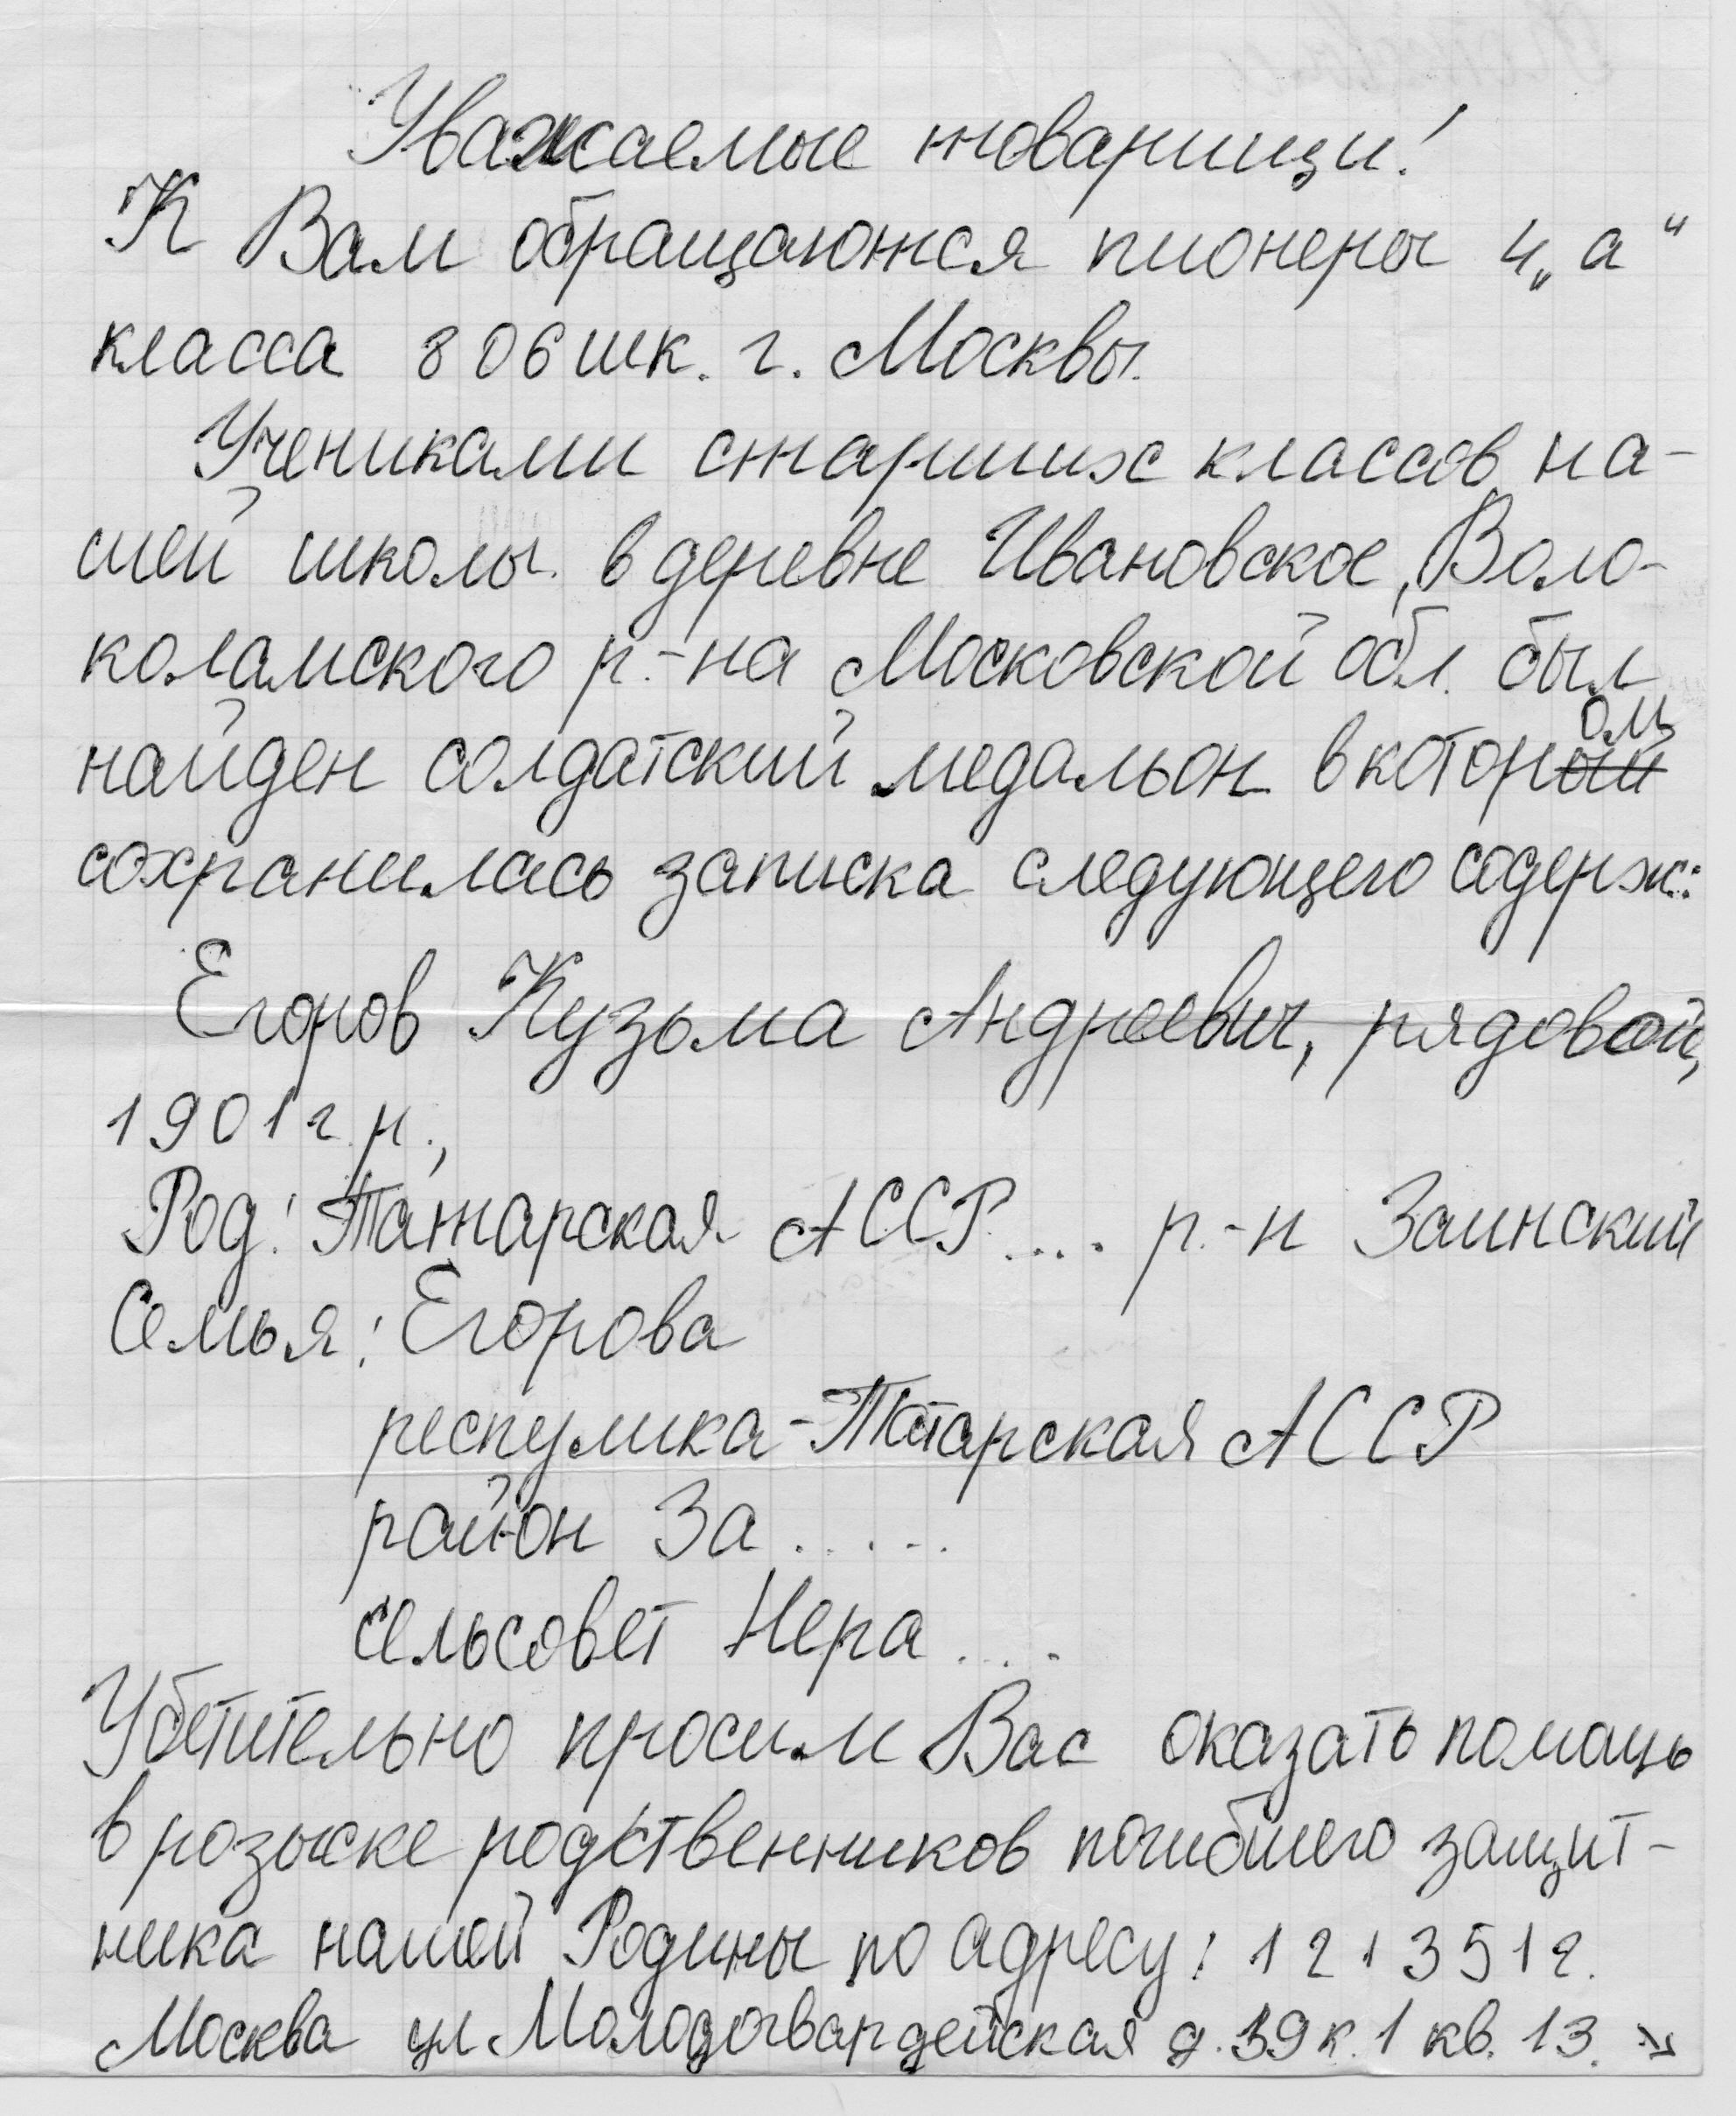 Уважаемые товарищи!
К Вам обращаются пионеры 4 „а“
класса 806 шк. г. Москвы.
Учениками старших классов на-
шей школы в деревне Ивановское, Воло-
коламского р.-на Московской обл. был
найден солдатский медальон в котором
сохранилась записка следующего содерж:
Егоров Кузьма Андреевич, рядовой,
1901 г.р.,
Род: Татарская АССР.... р.-н Заинский
Семья: Егорова
респулика - Татарская АССР
район За.....
сельсовет Нера....
Убетительно просим Вас оказать помощь
в розыске родственников погибшего защит-
ника нашей Родины по адресу: 121351 г.
Москва ул Молодогвардейская д. 39 к. 1 кв. 13. ↘